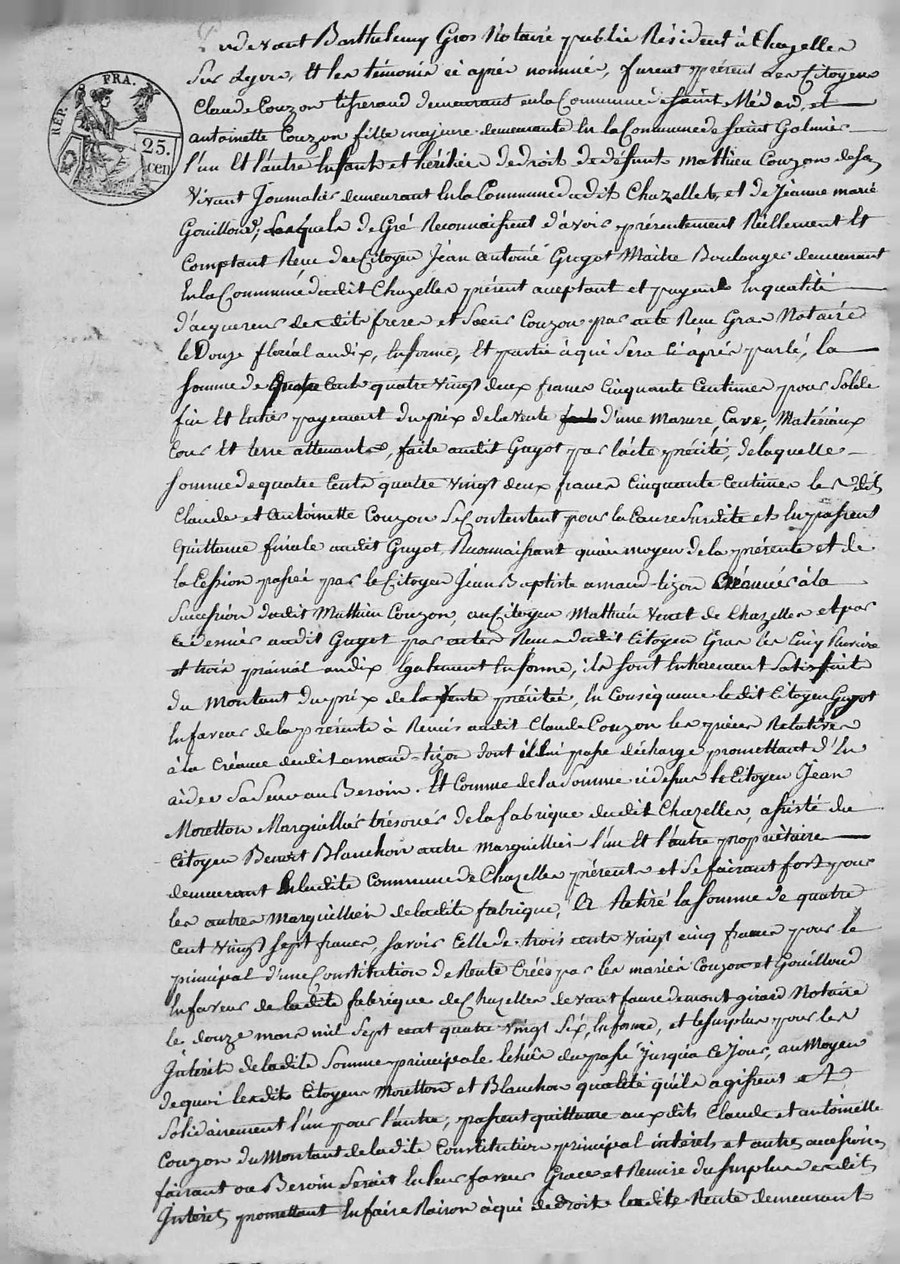 RÉP. FRA.
25. cen
Pardevant Barthelemy Gros Notaire public Résident à Chazelles
Sur Lyon, Et les témoins ci après nommés, furent présent Les Citoyens
Claude Couzon tisserand demeurant en la Commune de Saint Médard, et
antoinette Couzon fille majeure demeurante En la Commune de Saint Galmier
l'un Et l'autre Enfant et héritier de droit de défunt Mathieu Couzon de son
Vivant Journalier demeurant En la Commune dudit Chazelles, et de Jeanne marie
Gouilloud, Lesquels de Gré Reconnaissent d'avoir présentement Réellement Et
Comptant Reçu du Citoyen Jean Antoine Guyot Maitre Boulanger demeurant
En la Commune dudit Chazelles présent aceptant et payant En qualité
d'acquereur desdits freres et Soeur Couzon par acte Reçu Gros Notaire
le Douze floréal an dix, En forme, Et partie à qui Sera Ci après parlé, la
Somme de quatre Cents quatre vingt deux francs Cinquante Centimes pour Solde
fin Et Entier payement du prix de la vente d'une Masure, Cave, Matériaux
Cour Et terre attenants, faite audit Guyot par l'acte précité, de laquelle
Somme de quatre Cents quatre vingt deux francs Cinquante Centimes lesdits
Claude et Antoinette Couzon Se Contentent pour la Cause Susdite et En passent
quittance finale audit Guyot, Reconnaissant qu'au moyen de la présente et de
la Cession passée par le Citoyen Jean Baptiste arnaud-tizon Créancier à la
Succession dudit Mathieu Couzon, au Citoyen Mathieu de Chazelles et par
Ce dernier audit Guyot par actes Reçus dudit Citoyen Gros les Cinq
et trois prairial an dix Egalement En forme, ils sont Entierement Satisfaits
du Montant du prix de la Vente précitée, En Conséquence ledit Citoyen Guyot
En faveur de la présente à Remis audit Claude Couzon les pièces Relatives
à la Créance dudit arnaud-tizon dont il lui passe décharge promettant d'En
aider Sa Soeur au Besoin. Et Comme de la Somme ci dessus le Citoyen Jean
Moretton Marguillier trésorier de la fabrique dudit Chazelles, assisté du
Citoyen Benoit Blanchon autre Marguillier l'un Et l'autre propriétaire
demeurant En ladite Commune de Chazelles présents et Se faisant fort pour
les autres Marguilliers de ladite fabrique, à Retiré la Somme de quatre
Cent Vingt Sept francs, Savoir Celle de trois cents vingt cinq francs pour le
principal d'une Constitution de Rente Créée par les mariés Couzon et Gouilloud
En faveur de ladite fabrique de Chazelles devant faure demontgirard Notaire
le douze mars mil Sept cent quatre vingt Six, En forme, et le surplus pour les
Intérêt de ladite Somme principale Echus du passé Jusqu'à Ce Jour, au Moyen
de quoi lesdits Citoyens Moretton et Blanchon qualité qu'ils agissent et
Solidairement l'un pour l'autre, passent quittance auxdits Claude et antoinette
Couzon du Montant de ladite Constitution principal intérêts et autres accessoires
faisant ou Besoin Serait En leur faveur Grace et Remise du Surplus desdits
Intérêts, promettant En faire Raison à qui de droit ladite Rente demeurant